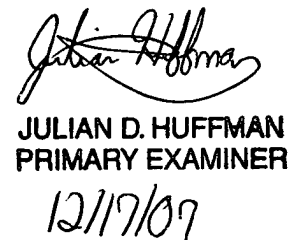 Julian Huffman
JULIAN D. HUFFMAN
PRIMARY EXAMINER
12/17/07